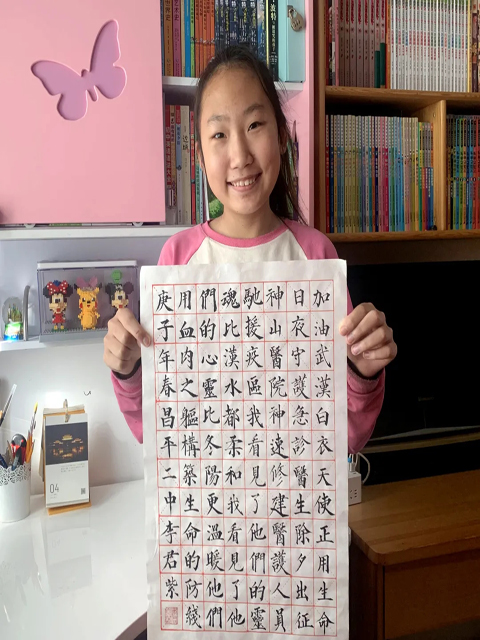 加油武漢白衣天使正用生命
日夜守護急診醫生除夕出征
神山醫院神速修建醫護人員
馳援疫區我看見了他們的靈
魂比漢水都柔和我看見了他
們的心靈比冬陽更溫暖他們
用血肉之軀構築生命的防綫
庚子年春昌平二中李君紫
波特
04